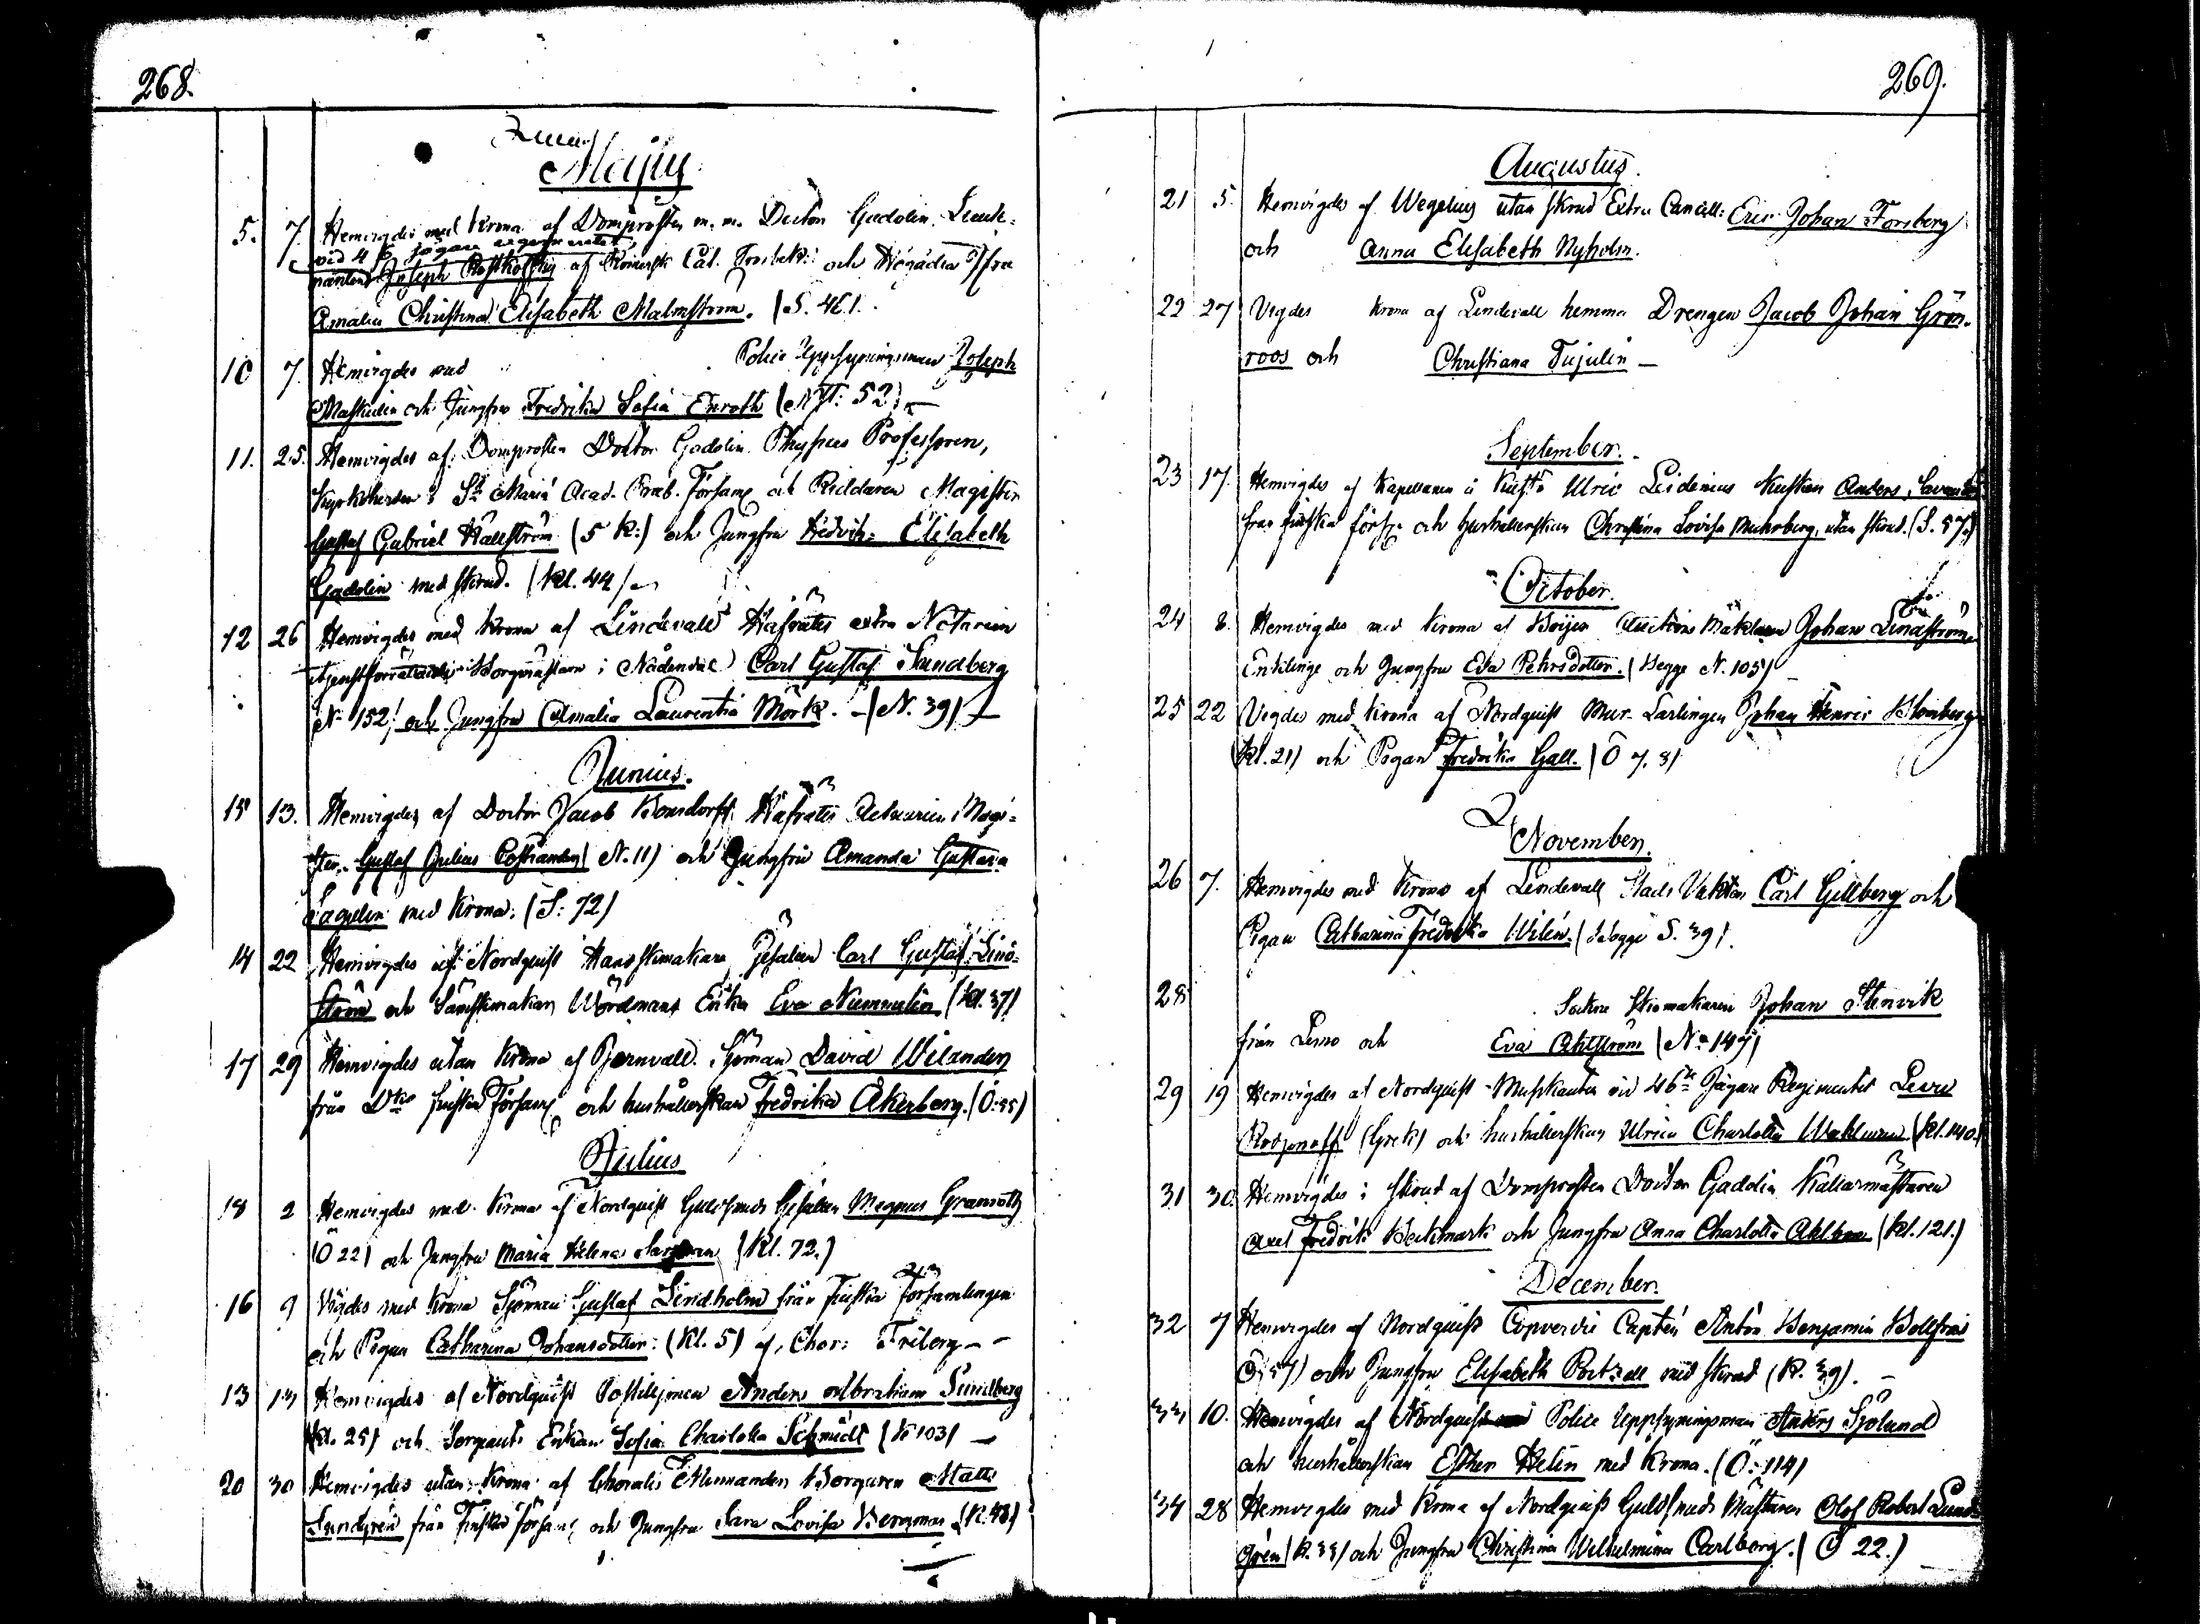 268.
Majus
5. 7. Hemvigdes med Krona af Domprosten m. m. Doctor Gadolin Lieute-
vid 4 Jägare regementet
nanten Joseph af Romersk Cat. och Högädla Jfru
Amalia Christina Elisabeth Malmström. (S. 46).
10 7. Hemvigdes med Police Uppsyningsman Joseph
och Jungfru Fredrika Sofia Enroth (N: 52) —
11. 25. Hemvigdes af Domprosten Doctor Gadolin Physices Professoren,
Kyrkoherden i St Mariæ Acad. Præb. Församl och Riddaren Magister
Gustaf Gabriel Hällström (5 K:) och Jungfru Hedvih: Elisabeth
Gadolin med skrud. (Kl. 44)
12 26 Hemvigdes med Krona af Lindevall Hofrätts extra Notarien
Borgmästaren i Nådendal Carl Gustaf Sundberg
N 152) och Jungfru Amalia Laurentia Mörk. — (N. 39) —
Junius.
15 13. Hemvigdes af Doctor Jacob Bonsdorff Hofrätts Actuarien Magi-
ster Gustaf Julius (N. 11) och Jungfru Amanda Gustava
Sagulin med Krona. (S: 72)
14 22 Hemvigdes af Nordquist Handskmakare Gesällen Carl Gustaf Lind-
ström och Wördmans Enka Eva Nummelin (Kl. 37)
17 29 Hemvigdes utan Krona af Bjornvall Sjöman David Wilander
från Finska Församl och hushållerskan Fredrika Åkerberg. (Ö: 55)
Julius
18 2 Hemvigdes med Krona af Nordquist Guldsmeds Gesällen Magnus Granroth
(Ö 22) och Jungfru Maria Helena (Kl. 72.)
16 9 Vigdes med Krona Sjöman Gustaf Lindholm från Finska Församlingen
och Pigan Catharina Johansdotter. (Kl. 5) af Chor: Friberg —
13 Hemvigdes af Nordquist Postiljonen Anders Abraham Sundberg
Kl. 25) och Sergeants Enkan Sofia Charlotta Schmidt (K 103) —
20 30 Hemvigdes utan Krona af Choralis Borgaren Matts
Sundgren från Finska församl och Jungfru Sara Lovisa Bergman (K. 48)
269.
Augustus.
21 5. Hemvigdes af Wegelius utan skrud Extra Cancell: Eric Johan Forsberg
och Anna Elisabeth Nyholm.
22 27 Vigdes Krona af Lindevall hemma Drengen Jacob Johan Grön-
roos och Christiana Tujulin —
September.
23 17. Hemvigdes af Kapellanen i Ulric Leidenius Kusken Anders
från finska förs och hushållerskan Christina Lovisa Muhrberg, utan skrud. (S. 57.)
October.
24 8. Hemvigdes med Krona af Auctions Mäklaren Johan Lindström
Enkling och Jungfru Eva Pehrsdotter. (Begge N. 105)
25 22 Vigdes med Krona af Nordquist Mur-Lärlingen Johan Henric Blomberg
(Kl. 21) och Pigan Fredrika Gall. (Ö 7. 8)
November.
26 7. Hemvigdes med Krona af Lindevall Stads Vaktm Carl Gillberg och
Pigan Catharina Fredrika Wilén. (begge S. 39).
28 Sockne Skomakaren Johan Stenvik
från Lemo och Eva Ahlström (No 147)
29 19 Hemvigdes af Nordquist Musikanten vid 46te Jägare Regimentet
(Grek) och hushållerskan Ulrica Charlotta (Kl. 140.)
31 30. Hemvigdes i skrud af Domprosten Doctor Gadolin Källarmästaren
Axel Fredrik Beckmark och Jungfru Anna Charlotta Ahlbom (Kl. 121.)
December.
32 7 Hemvigdes af Nordquist Coopverdie Capten Anton Benjamin
Ö 57) och Jungfru Elisabeth med skrud (K. 39). —
33 10. Hemvigdes af Nordquist Police Uppsyningsman Anders Sjölund
och hushållerskan Esther Helin med Krona. (Ö: 114)
34 28 Hemvigdes med Krona af Nordquist Guldsmeds Mästaren Olof Robert Lund-
gren (K. 33) och Jungfru Christina Wilhelmina Carlberg. (Ö 22.)